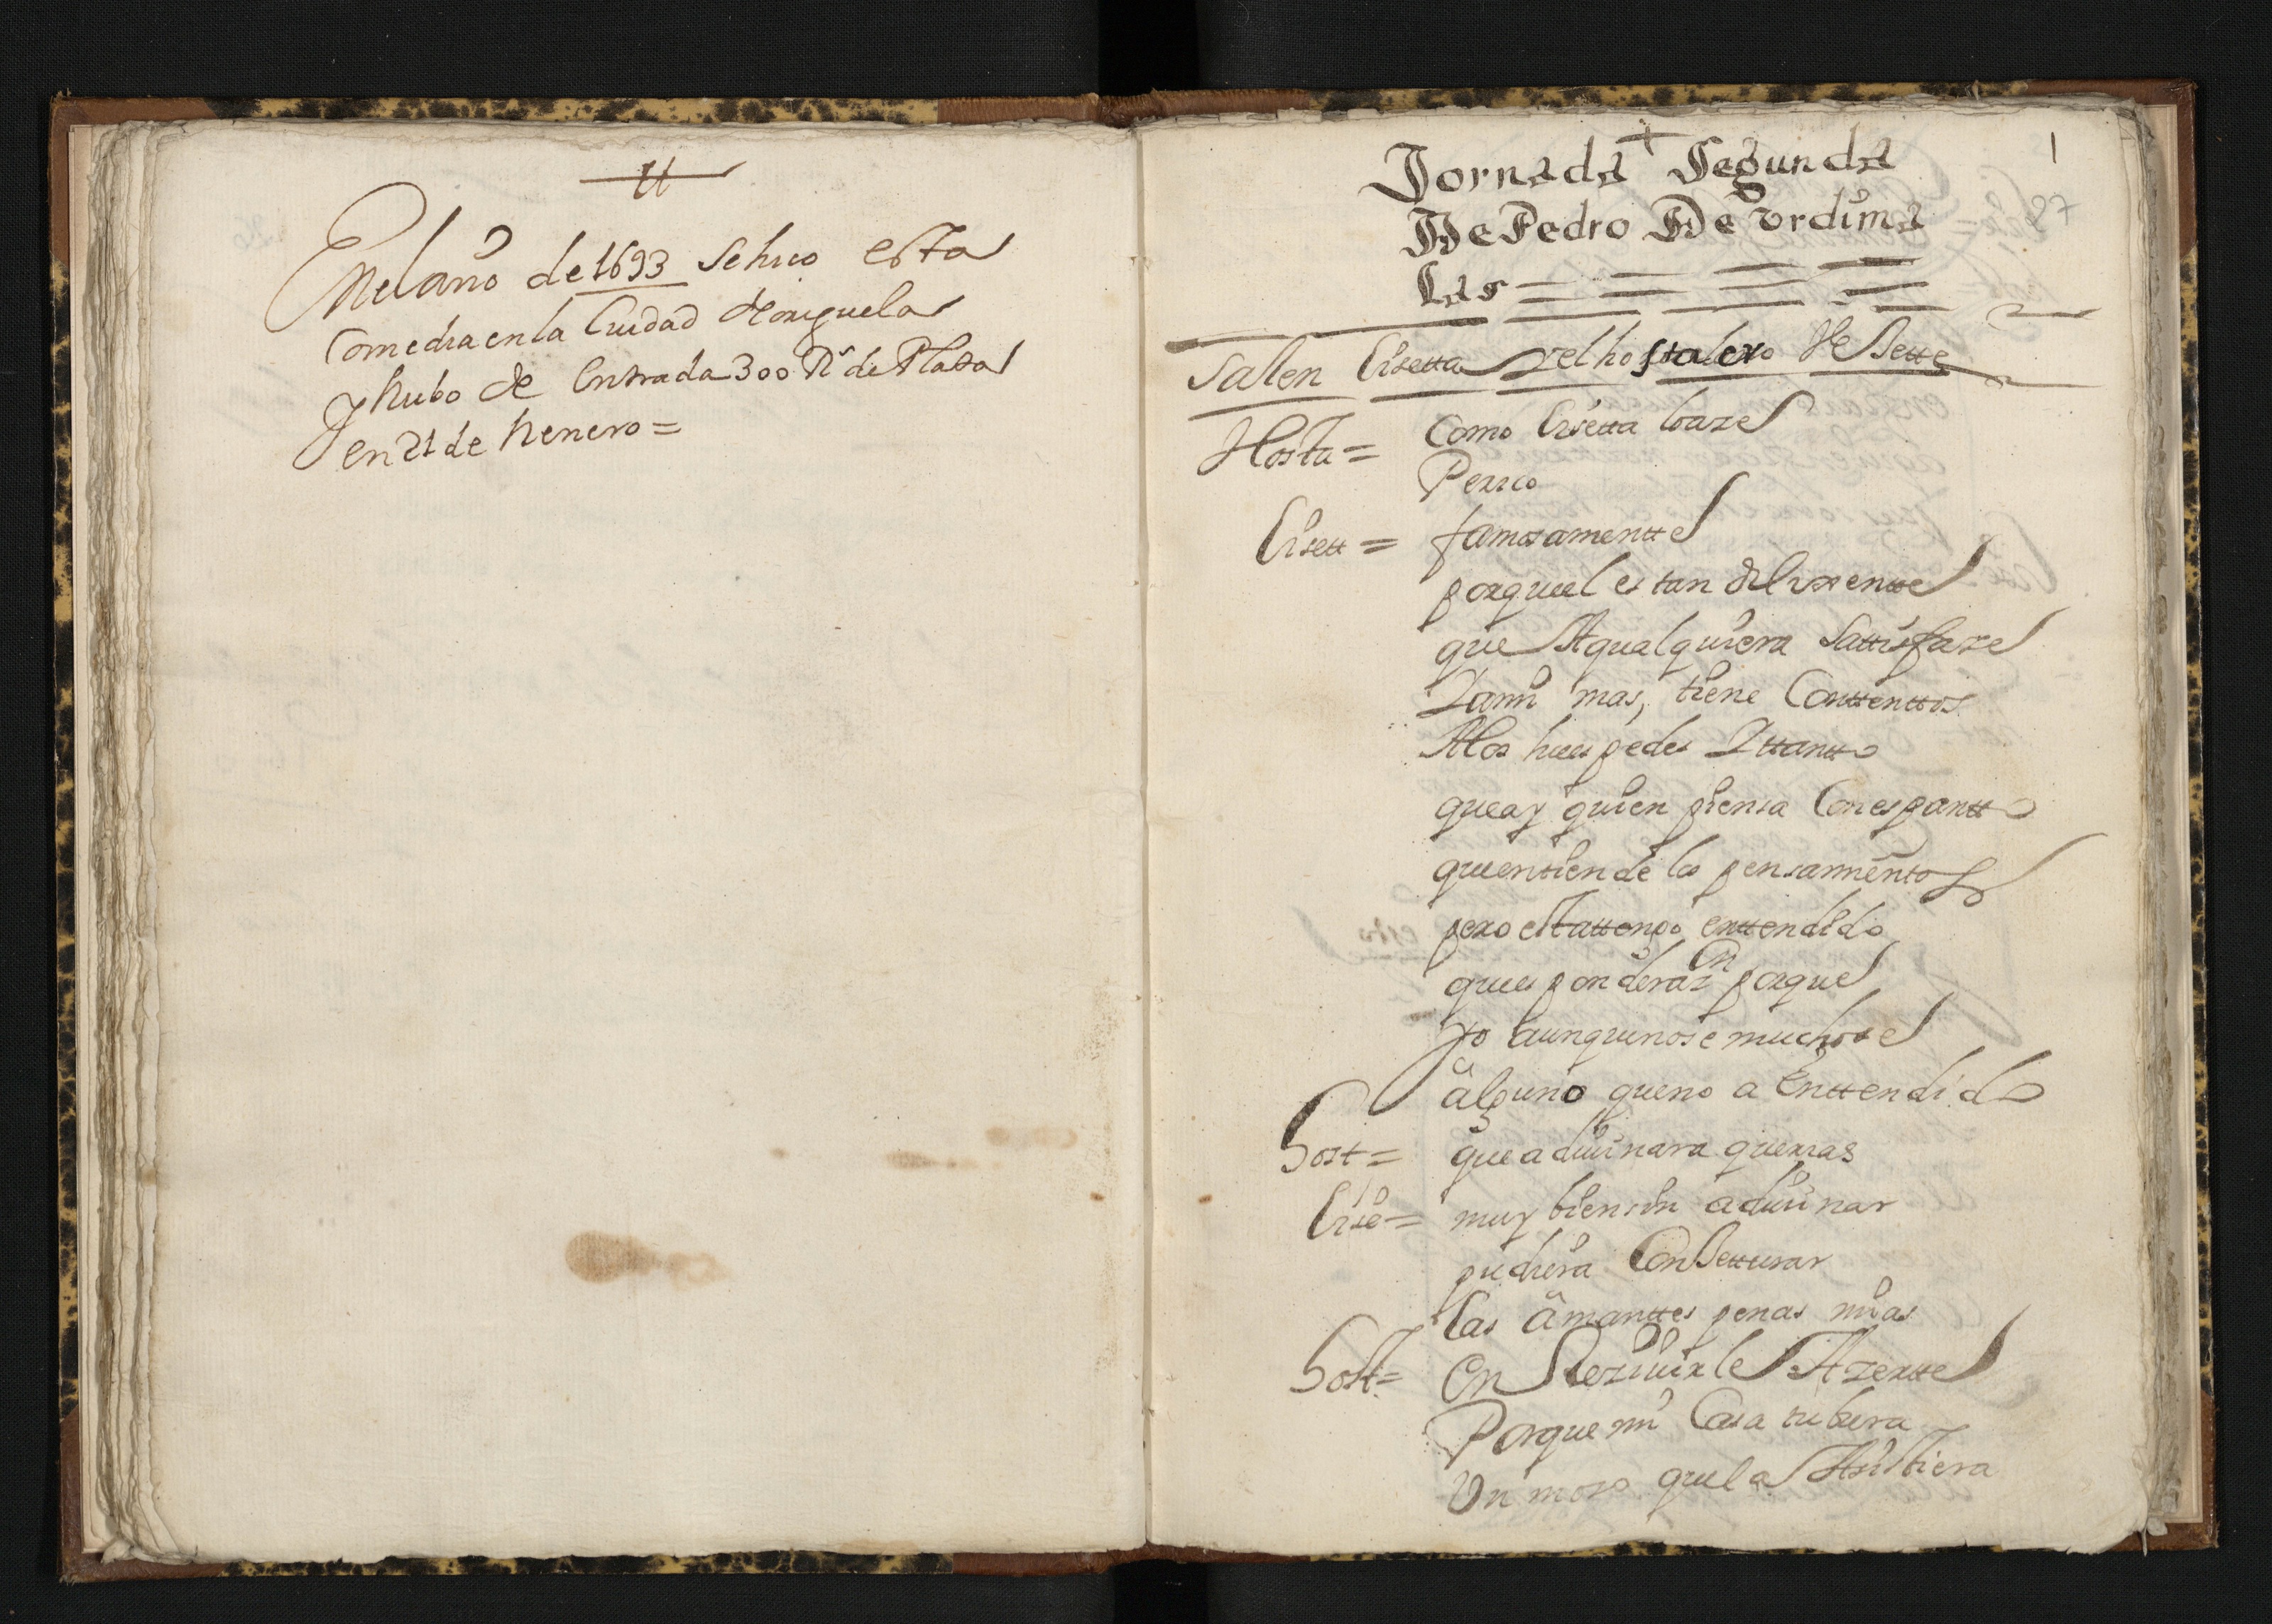 En el año de 1693 se hiço esta
Comedia en la Ciudad de origuela
Y hubo de entrada 300 Rs de Plata
en 21 de henero =
1
27
Jornada Segunda
De Pedro De Vrdima
las =
Salen Lisetta y el hostalero De Sette
Hosta = Como Lisetta lo aze
Perico
Lisett = famosamentte
porque el es tan dilixentte
que A qualquiera sattisfaze
Y aun mas, tiene Conttenttos
A los huespedes Y ttantto
que ay quien piensa Con espantto
que entiende los pensamientos
pero esta ttengo enttendido
que es ponderar En porque
yo aunqui no se mucho se
alguno que no a Enttendido
Host = que adiuinara querias
Lise = muy bien sin adiuinar
pudiera Conjetturar
las amanttes penas mias
Host = En Reziuirle Azertte
Porque mi Casa tubiera
Vn moso que la Asistiera